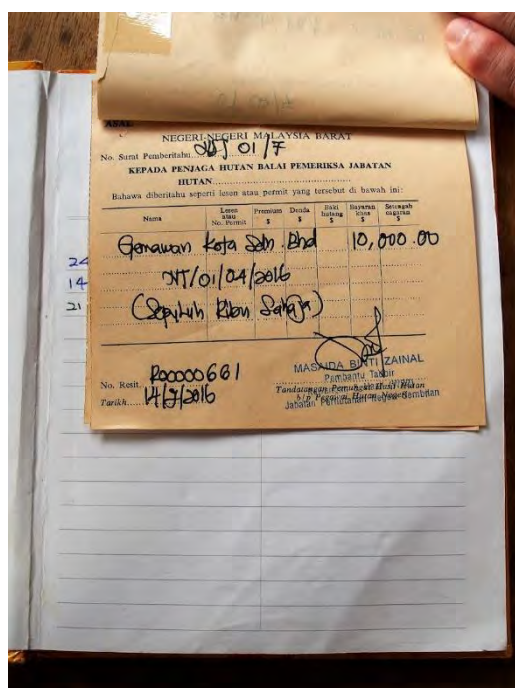 ASAL
NEGERI-NEGERI MALAYSIA BARAT
No. Surat Pemberitahu 01/7
KEPADA PENJAGA HUTAN BALAI PEMERIKSA JABATAN
HUTAN
Bahawa diberitahu seperti lesen atau permit yang tersebut di bawah ini:
Nama Lesen atau No. Permit Premium $ Denda $ Baki hutang $ Bayaran khas $ Setengah cagaran $
Gemawan Kota Sdn. Bhd 10,000.00
24 /01/04/2016
14 (Sepuluh Ribu Sahaja)
21
MASAIDA BINTI ZAINAL
Pembantu Tadbir
No. Resit R0000661
Tandatangan Pemungut Hasil Hutan
b/p Pegawai Hutan Negeri
Tarikh 14/7/2016
Jabatan Perhutanan Negeri Sembilan